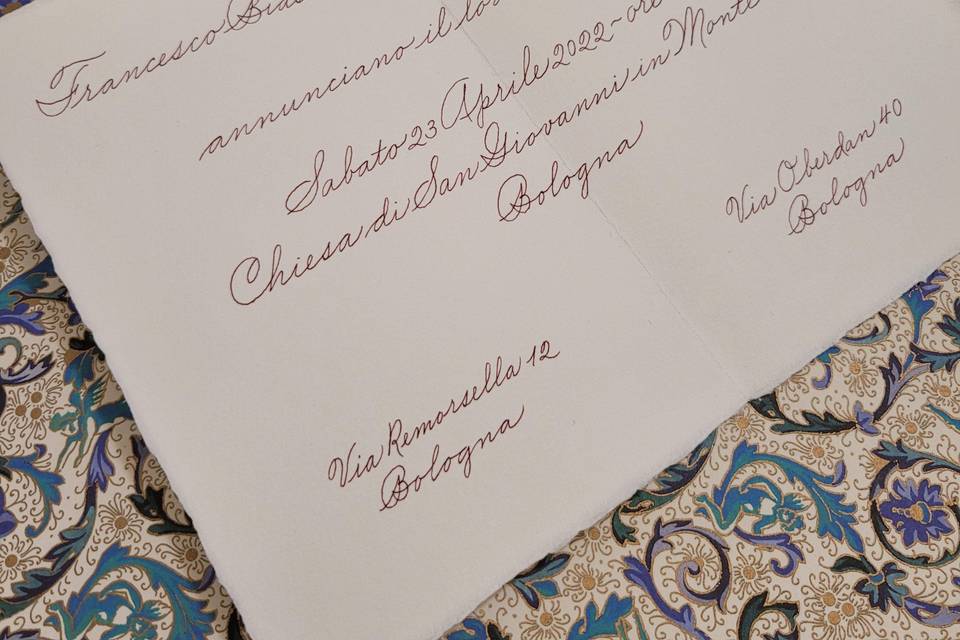 Francesco
annunciano il
Sabato 23 Aprile 2022 ~ ore
Chiesa di San Giovanni in Monte
Bologna
Via Oberdan 40
Bologna
Via Remorsella 12
Bologna